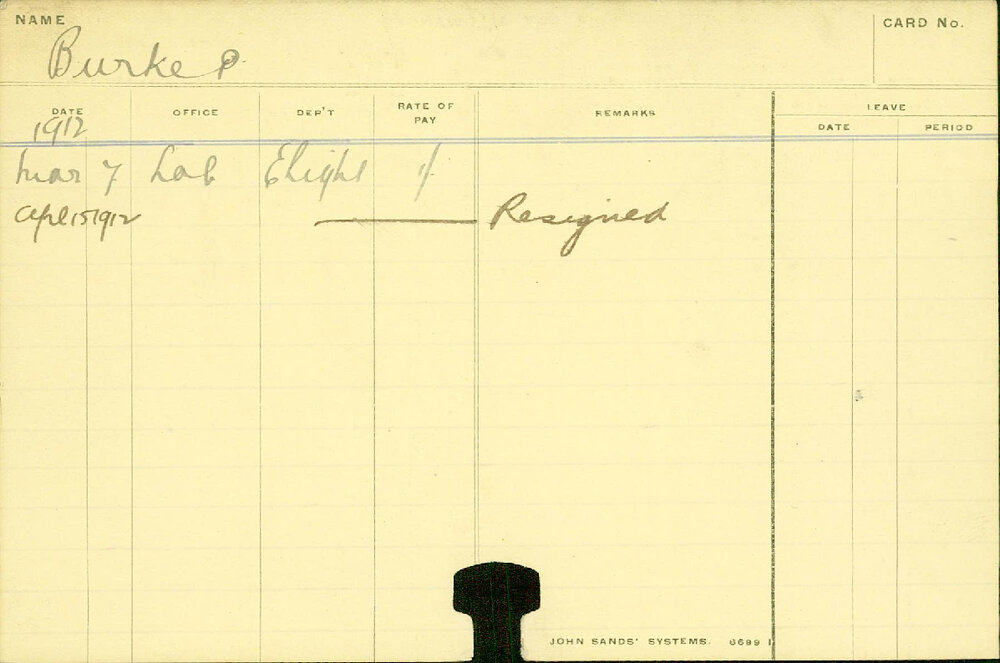 NAME
Burke P.
CARD No.
DATE OFFICE DEP'T RATE OF PAY REMARKS LEAVE
DATE PERIOD
1912
Mar 7 Lab Elight 1/-
Apl 15 1912 Resigned
JOHN SANDS' SYSTEMS. 6699